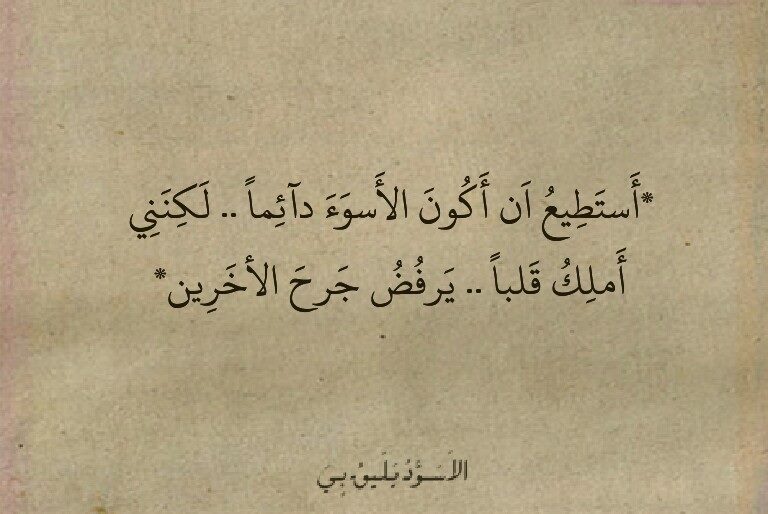 *أَستَطِيعُ اَن أَكُونَ الأَسوَءَ دآئِماً .. لَكِنَنِي
أَملِكُ قَلباً .. يَرفُضُ جَرحَ الأخَرِين*
الأسوَدُ يَليقُ بِيَ